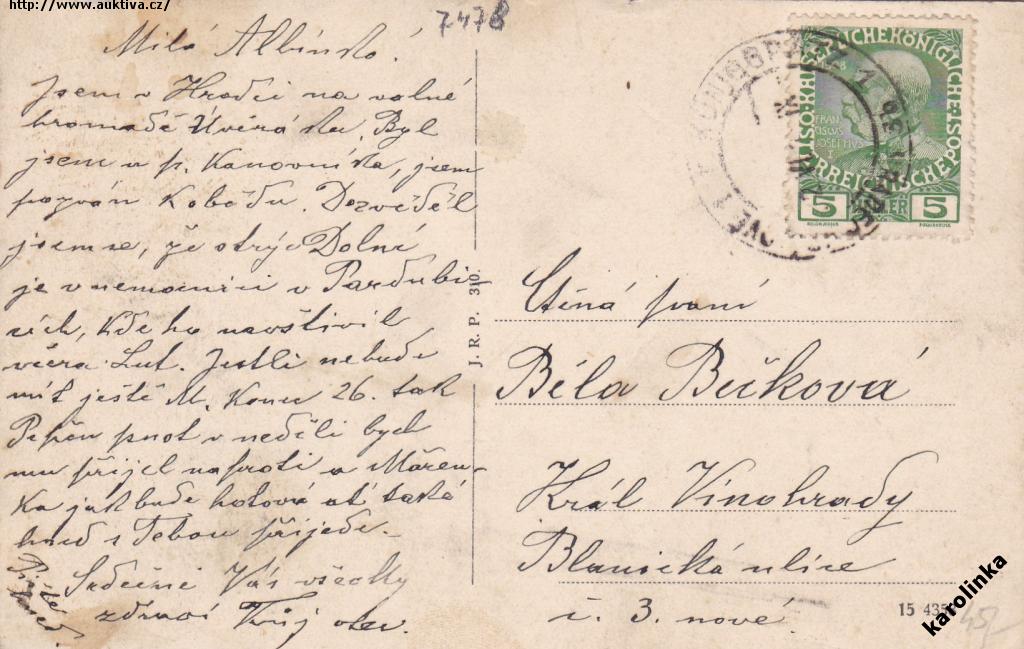 http://www.auktiva.cz/
7478
Milá Albínko!
Jsem v Hradci na valné
hromadě Úvěrásku. Byl
jsem u p. Kanovníka, jsem
pozván k obědu. Dozvěděl
jsem se, že strýc Dolní
je v nemocnici v Pardubi-
cích, kde ho navštívil
včera Lut. Jestli nebude
mít ještě M. Konec 26. tak
Pepču pust v neděli bych
mu přijel naproti a Mařen-
ka jak bude hotová ať také
hned s Tebou přijede.
Srdečně Vás všecky
zdraví Tvůj otec.
Pište hned.
J. R. P. 310.
KAISERLICHE KÖNIGLICHE ÖSTERREICHISCHE POST
FRANCISCUS JOSEPHUS I
5 HELLER 5
KÖNIGGRÄTZ 1
HRADEC KRÁLOVÉ 1
Ctěná paní
Béla Bečková
Král Vinohrady
Blanická ulice
č. 3. nové.
15 435
karolinka
45/